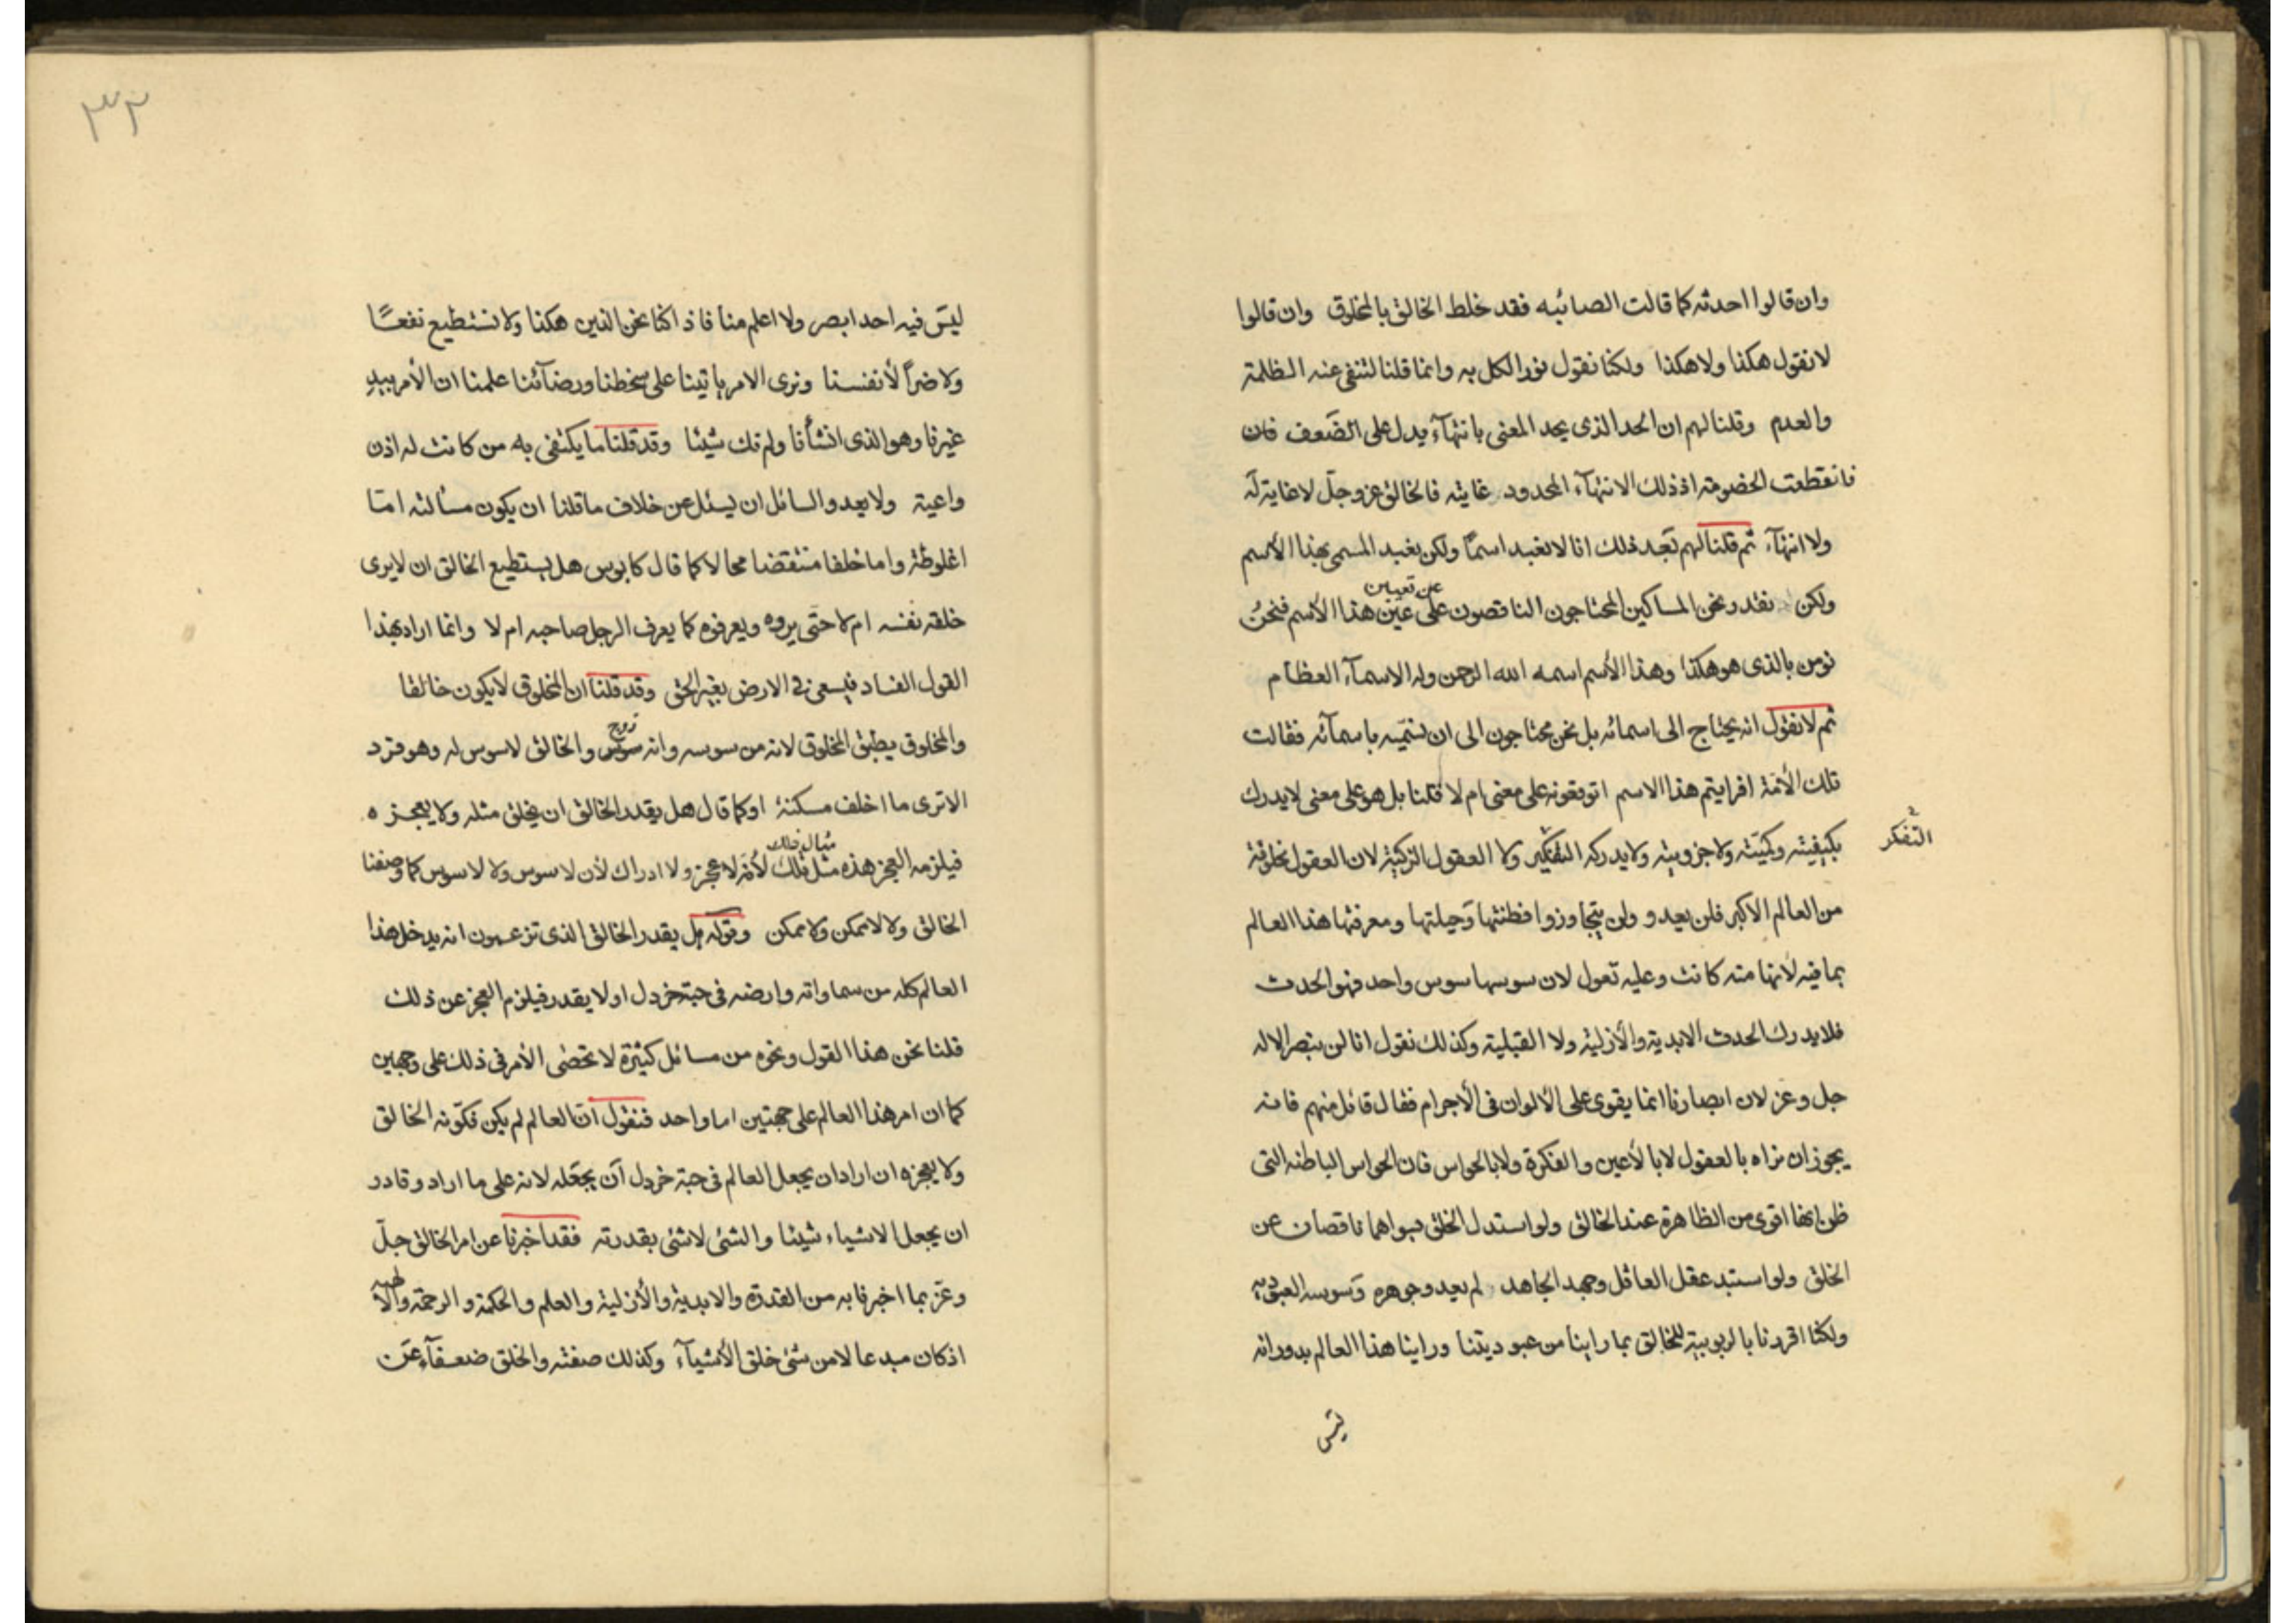 وان قالوا احدثه كما قالت الصائبه فقد خلط الخالق بالمخلوق وان قالوا
لا نقول هكذا ولا هكذا ولكنا نقول نور الكل به وانما قلنا لننفى عنه الظلمة
والعدم وقلنا لهم ان الحد الذى يحد المعنى بانتهآء يدل على الضعف فان
فانقطعت الخصومة اذ ذلك الانتهآء المحدود غايته فالخالق عز وجلّ لا غاية له
ولا انتهآء ثم قلنا لهم بعد ذلك انا لا نعبد اسمًا ولكن نعبد المسمى بهذا الأسم
ولكن نقدر نحن المساكين المحتاجون الناقصون على عين هذا الأسم فنحن
عن تعيين
نومن بالذى هو هكذا وهذا الأسم اسمه الله الرحمن وله الاسمآء العظام
ثم لا نقول انه يحتاج الى اسمائه بل نحن محتاجون الى ان نسمّيه باسمآئه فقالت
تلك الأئمة افرايتم هذا الاسم اتوقعونه على معنى ام لا قلنا بل هو على معنى لا يدرك
بكيفيته وكميّته ولا جزويته ولا يدركه التفكير ولا العقول الزكية لان العقول مخلوقة
التفكر
من العالم الاكبر فلن يعدو ولن يتجاوزوا فطنتها وحيلتها ومعرفتها هذا العالم
بما فيه لأنها منه كانت وعليه تعول لان سوسها سوس واحد فهو الحدث
فلا يدرك الحدث الابدية والأزلية ولا القبلية وكذلك نقول انا لن نبصر الاله
جل وعز لان ابصارنا انما يقوى على الألوان فى الأجرام فقال قائل منهم فانه
يجوز ان نراه بالعقول لا بالأعين والفكرة ولا بالحواس فان الحواس الباطنه التى
ظن انها اقوى من الظاهرة عند الخالق ولو استدل الخلق بسواهما ناقصان عن
الخلق ولو استبد عقل العاقل وجهد الجاهد لم يعد وجوهره وسوسه العبودية
ولكنا اقررنا بالربوبية للخالق بما راينا من عبوديتنا وراينا هذا العالم بدورانه
ليس
٣٢
ليس فيه احد ابصر ولا اعلم منا فاذا كنا نحن الذين هكذا ولا نستطيع نفعًا
ولا ضراً لأنفسنا ونرى الامر ياتينا على سخطنا ورضآئنا علمنا ان الأمر بيد
غيرنا وهو الذى انشأنا ولم نك شيئا وقد قلنا ما يكتفى به من كانت له اذن
واعية ولا يعدو السائل ان يسئل عن خلاف ما قلنا ان يكون مسألته امّا
اغلوطة واما خلفا منتقضا محالا كما قال كابوس هل يستطيع الخالق ان لا يرى
خلقه نفسه ام لا حتى يروه ويعرفوه كما يعرف الرجل صاحبه ام لا وانما اراد بهذا
القول الفساد فيسعى فى الارض بغير الحق وقد قلنا ان المخلوق لا يكون خالقا
والمخلوق يطبق المخلوق لانه من سوسه وانه سوس والخالق لا سوس له وهو فرد
زوج
الا ترى ما اخلف مسكنة او كما قال هل يقدر الخالق ان يخلق مثله ولا يعجزه
فيلزمه العجز هذه مثل تلك لأنه لا عجز ولا ادراك لأن لا سوس ولا لا سوس كما وصفنا
مثال تلك
الخالق ولا لا ممكن ولا ممكن وقوله هل يقدر الخالق الذى تزعمون انه يدخل هذا
العالم كله من سماواته وارضه فى حبة خردل او لا يقدر فيلزم العجز عن ذلك
قلنا نحن هذا القول ونحوه من مسائل كثيرة لا تحصى الأمر فى ذلك على وجهين
كما ان امر هذا العالم على جهتين اما واحد فنقول انّ العالم لم يكن فكوّنه الخالق
ولا يعجزه ان اراد ان يجعل العالم فى حبة خردل ان يجعله لانه على ما اراد وقادر
ان يجعل الاشياء شيئا والشئ لا شئ بقدرته فقد اخبرنا عن امر الخالق جلّ
وعزّ بما اخبرنا به من القدرة والابدية والأزلية والعلم والحكمة والرحمة والالهية
اذ كان مبدعا لا من شئ خلق الأشيآء وكذلك صفته والخلق ضعفآء عن